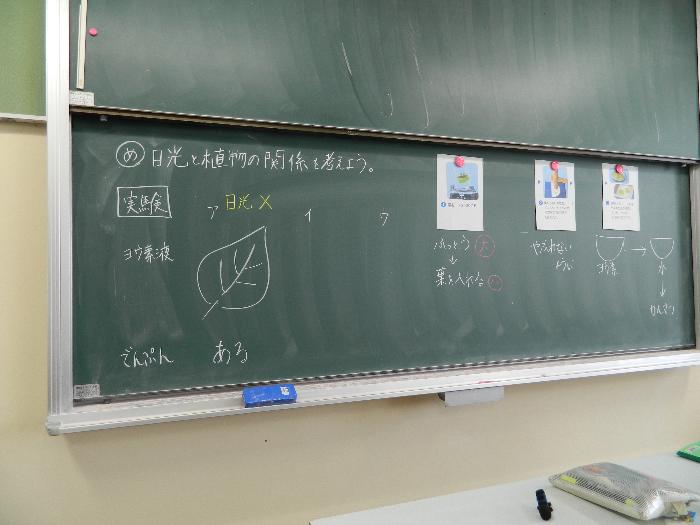 め 日光と植物の関係を考えよう。
実験
ア 日光 ×
イ
ウ
ヨウ素液
でんぷん ある
ふっとう 大
↓
葉を入れる 小
ヨウ素 → 水
↓
かんさつ